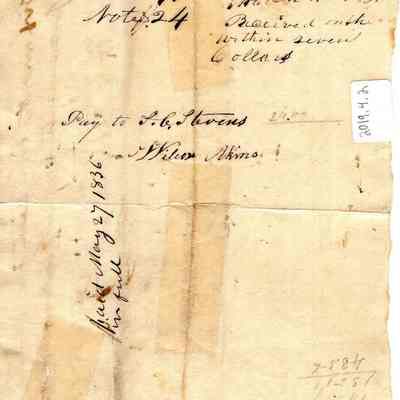 Note $24
Received on the
within seven
Dollars
Pay to S. C. Stevens 24.00
Wilson Akins
paid May 27 1836
in full
2019.4.2